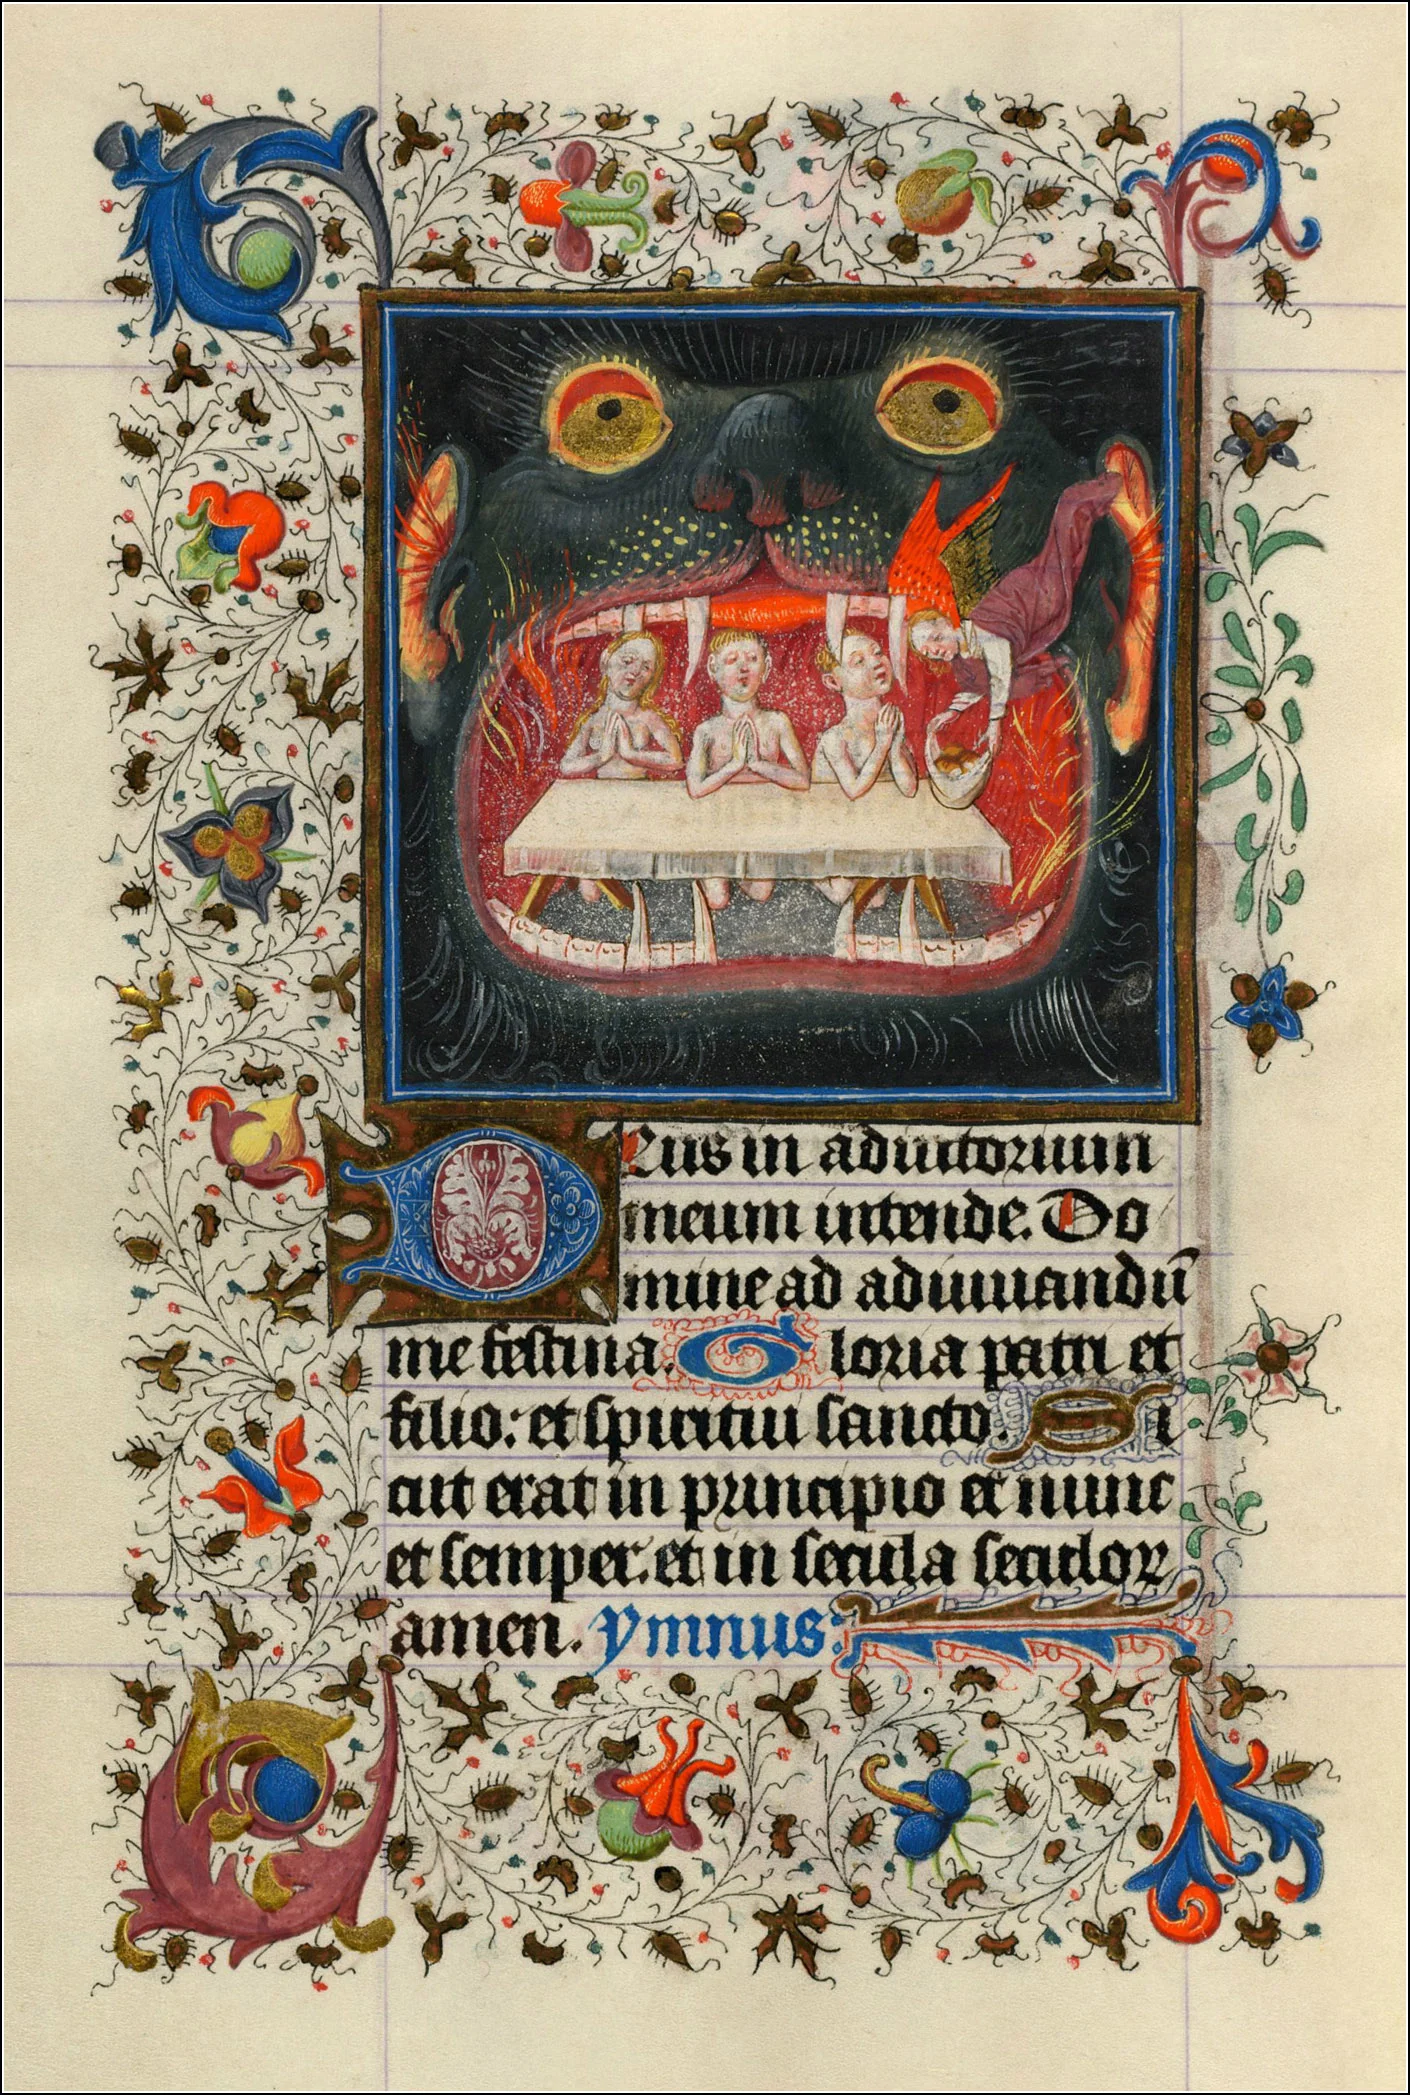 DEus in adiutorium
meum intende. Do
mine ad adiuuandū
me festina. Gloria patri et
filio: et spiritui sancto. Si
cut erat in principio et nunc
et semper. et in secula seculoꝝ
amen. ymnus: